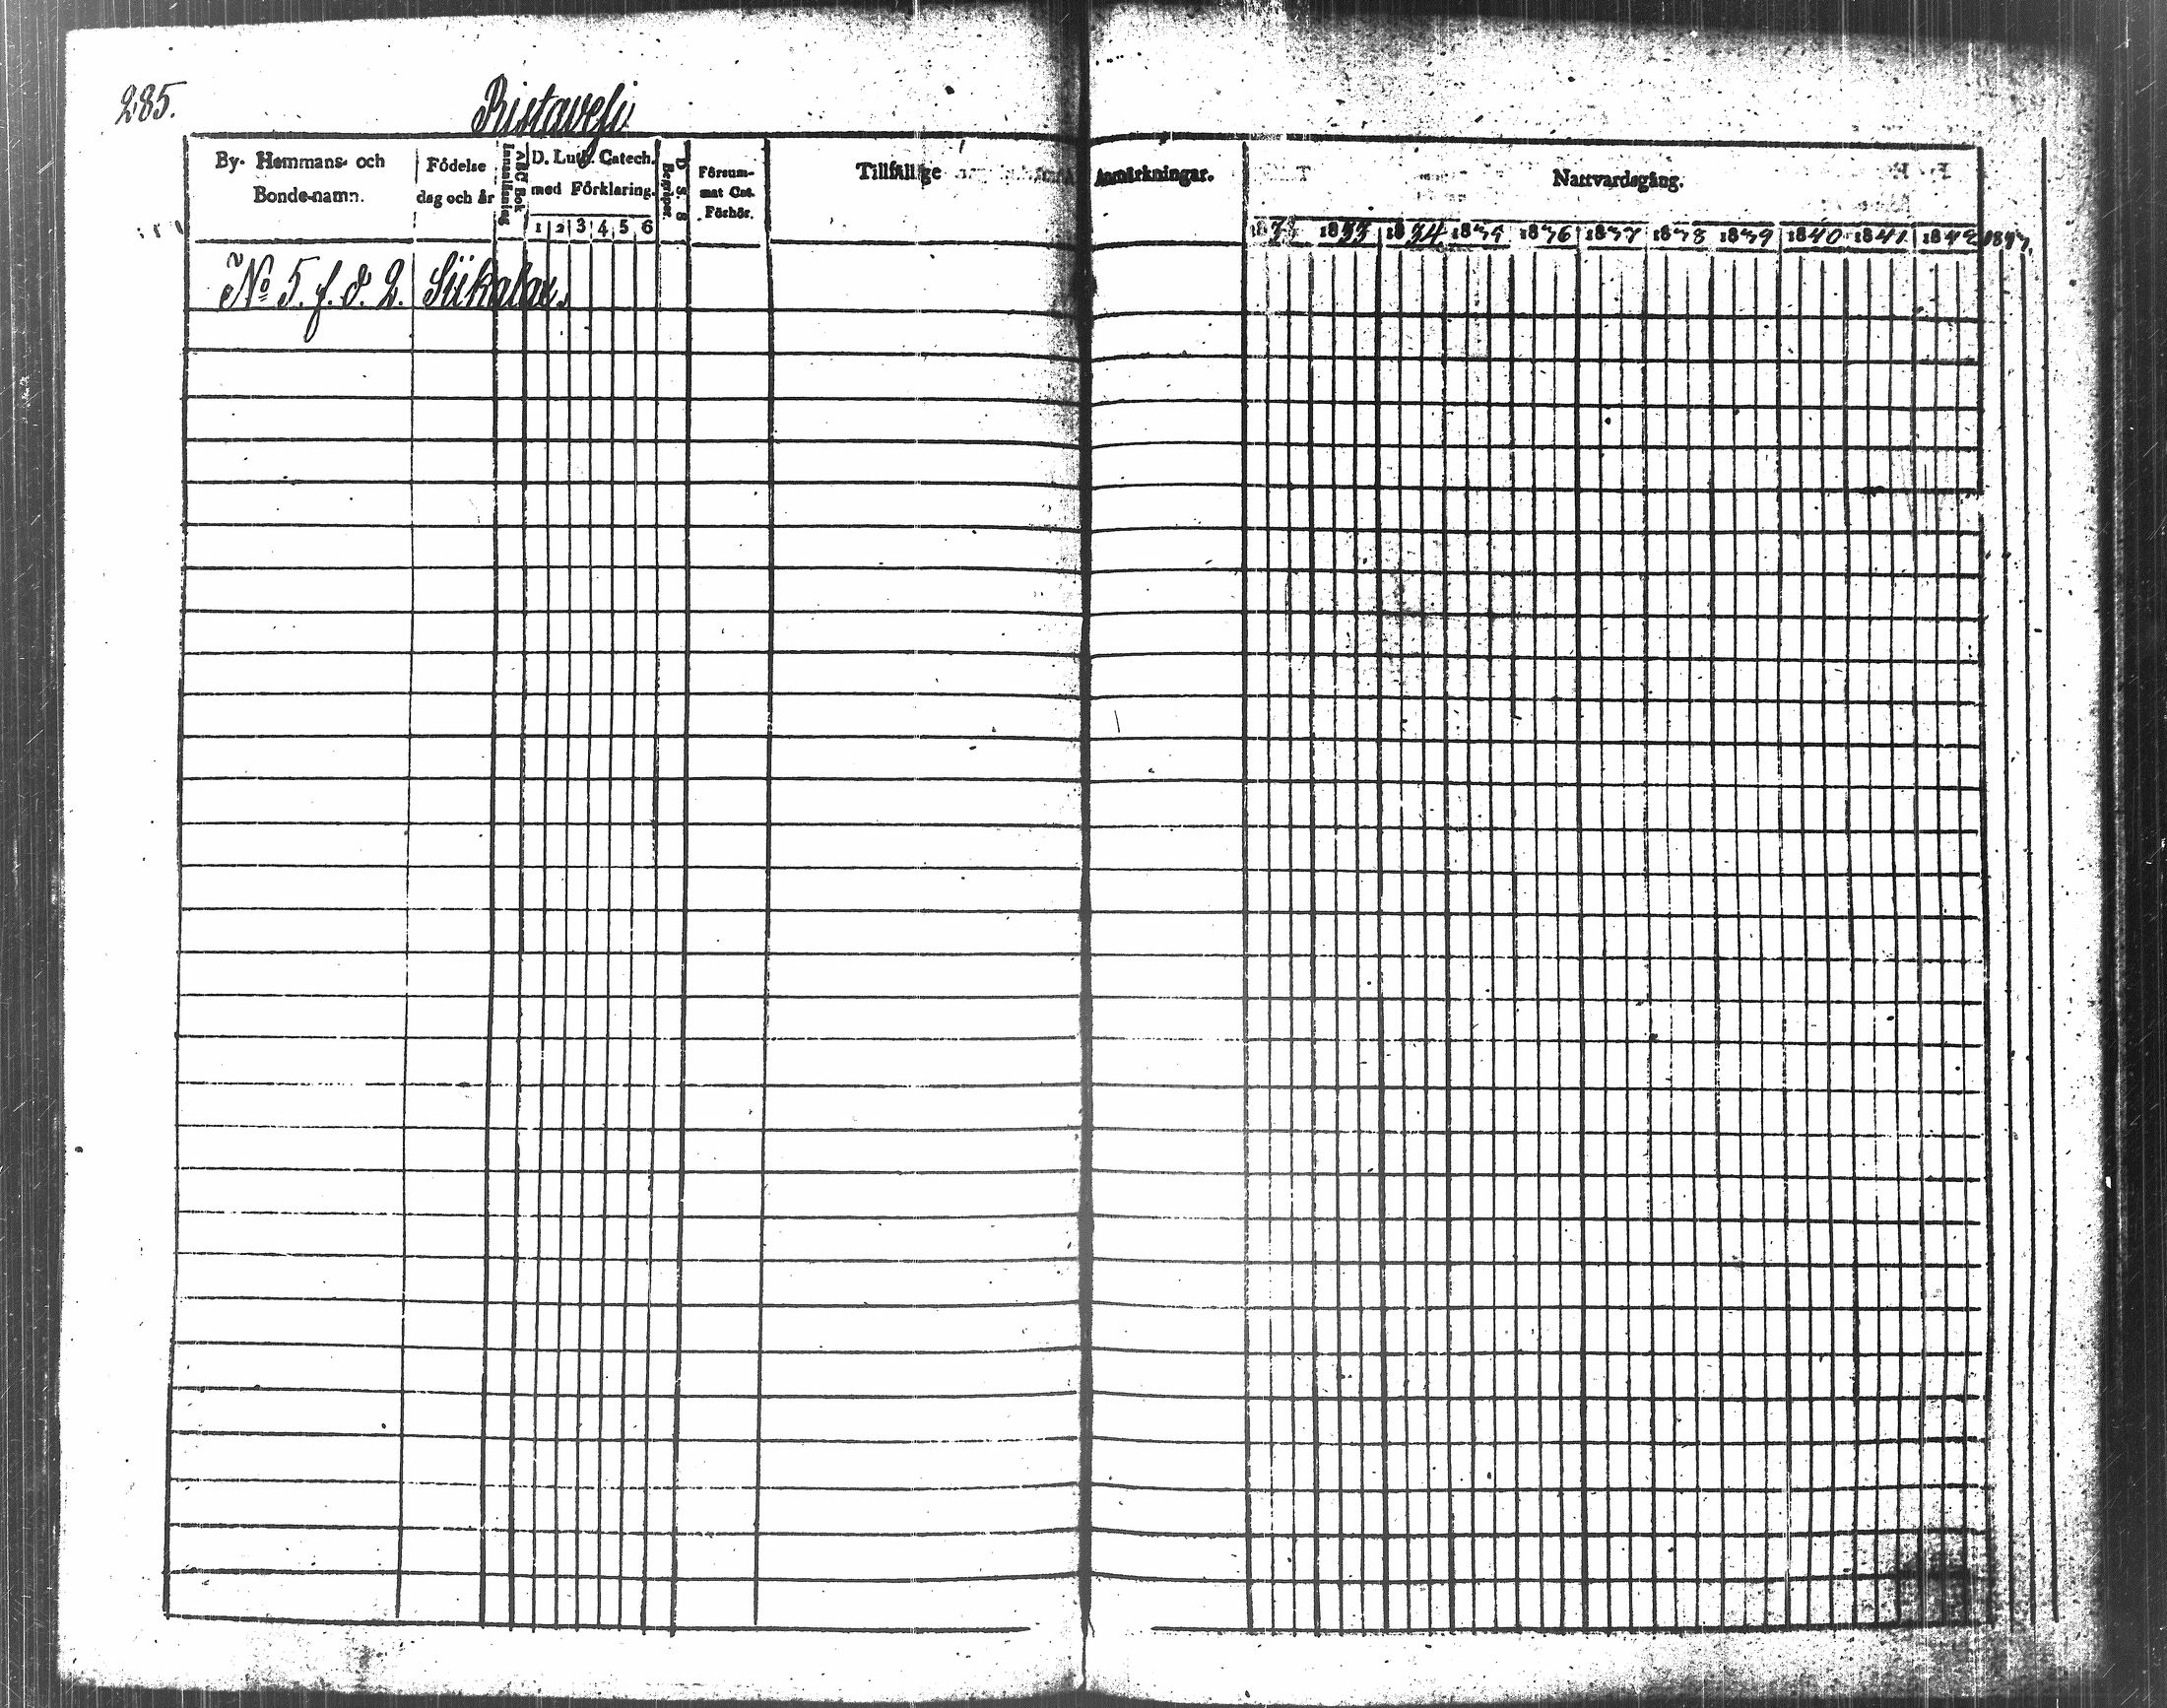 285.
Ristavesi
By- Hemmans- och Bonde-namn.
Födelse dag och år
Innanläsning
ABC Bok
D. Luth. Catech. med Förklaring.
1 2 3 4 5 6
D. S. S Begriper
Försum- mat Cat. Förhör.
Tillfällige Anmärkningar.
Nattvardsgång.
1833 1834 1835 1836 1837 1838 1839 1840 1841 1842 1843
No 5. f. d. 2. Siikalax.